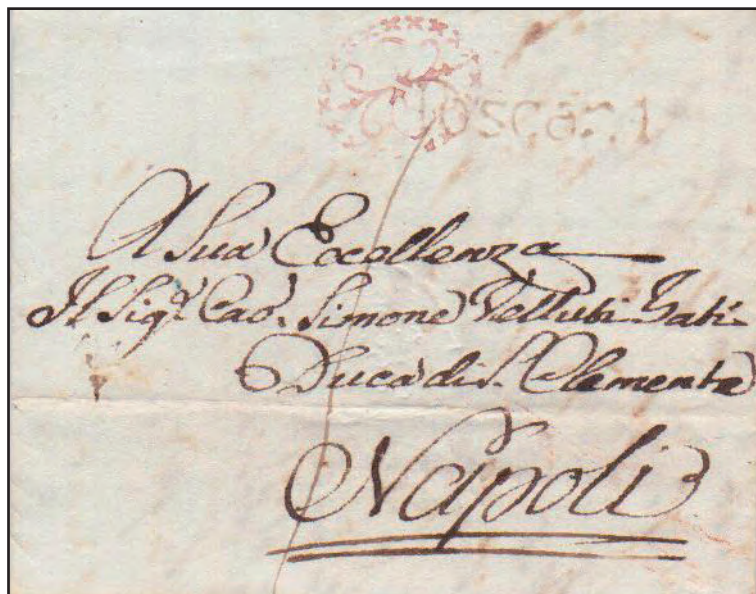 Toscana
A Sua Eccellenza
Il Sig.r Cav. Simone Velluti Zati
Duca di S. Clemente
Napoli